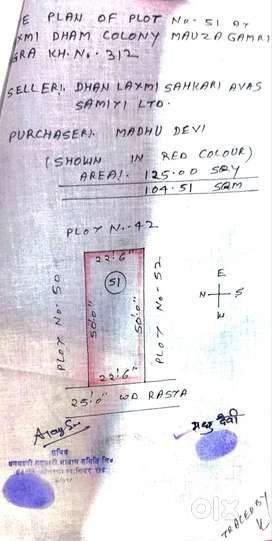 E PLAN OF PLOT No. 51 AT
XMI DHAM COLONY MAUZA GAMRI
GRA KH. No. 312
SELLER:. DHAN LAXMI SAHKARI AVAS
SAMITI LTD.
PURCHASER:. MADHU DEVI
(SHOWN IN RED COLOUR)
AREA:. 125.00 SQY
104.51 SQM
PLOT N.. 42
22'.6"
51
PLOT No. 50
50'.0"
50'.0"
PLOT No. 52
E
N S
W
22'.6"
25'.0" WD RASTA
मधु देवी
सचिव
TRACED BY
olx